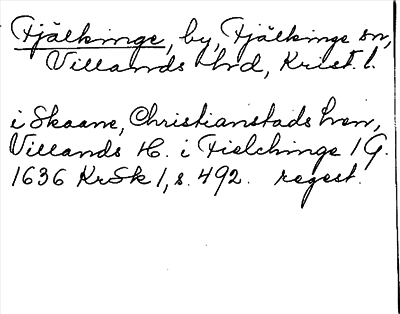 Fjälkinge, by, Fjälkinge sn,
Villands hd, Krist. l.
i Skaane, Christianstads Lren,
Villands H. i Fielchinge 1 G.
1636 KrSk 1, s. 492. regest.